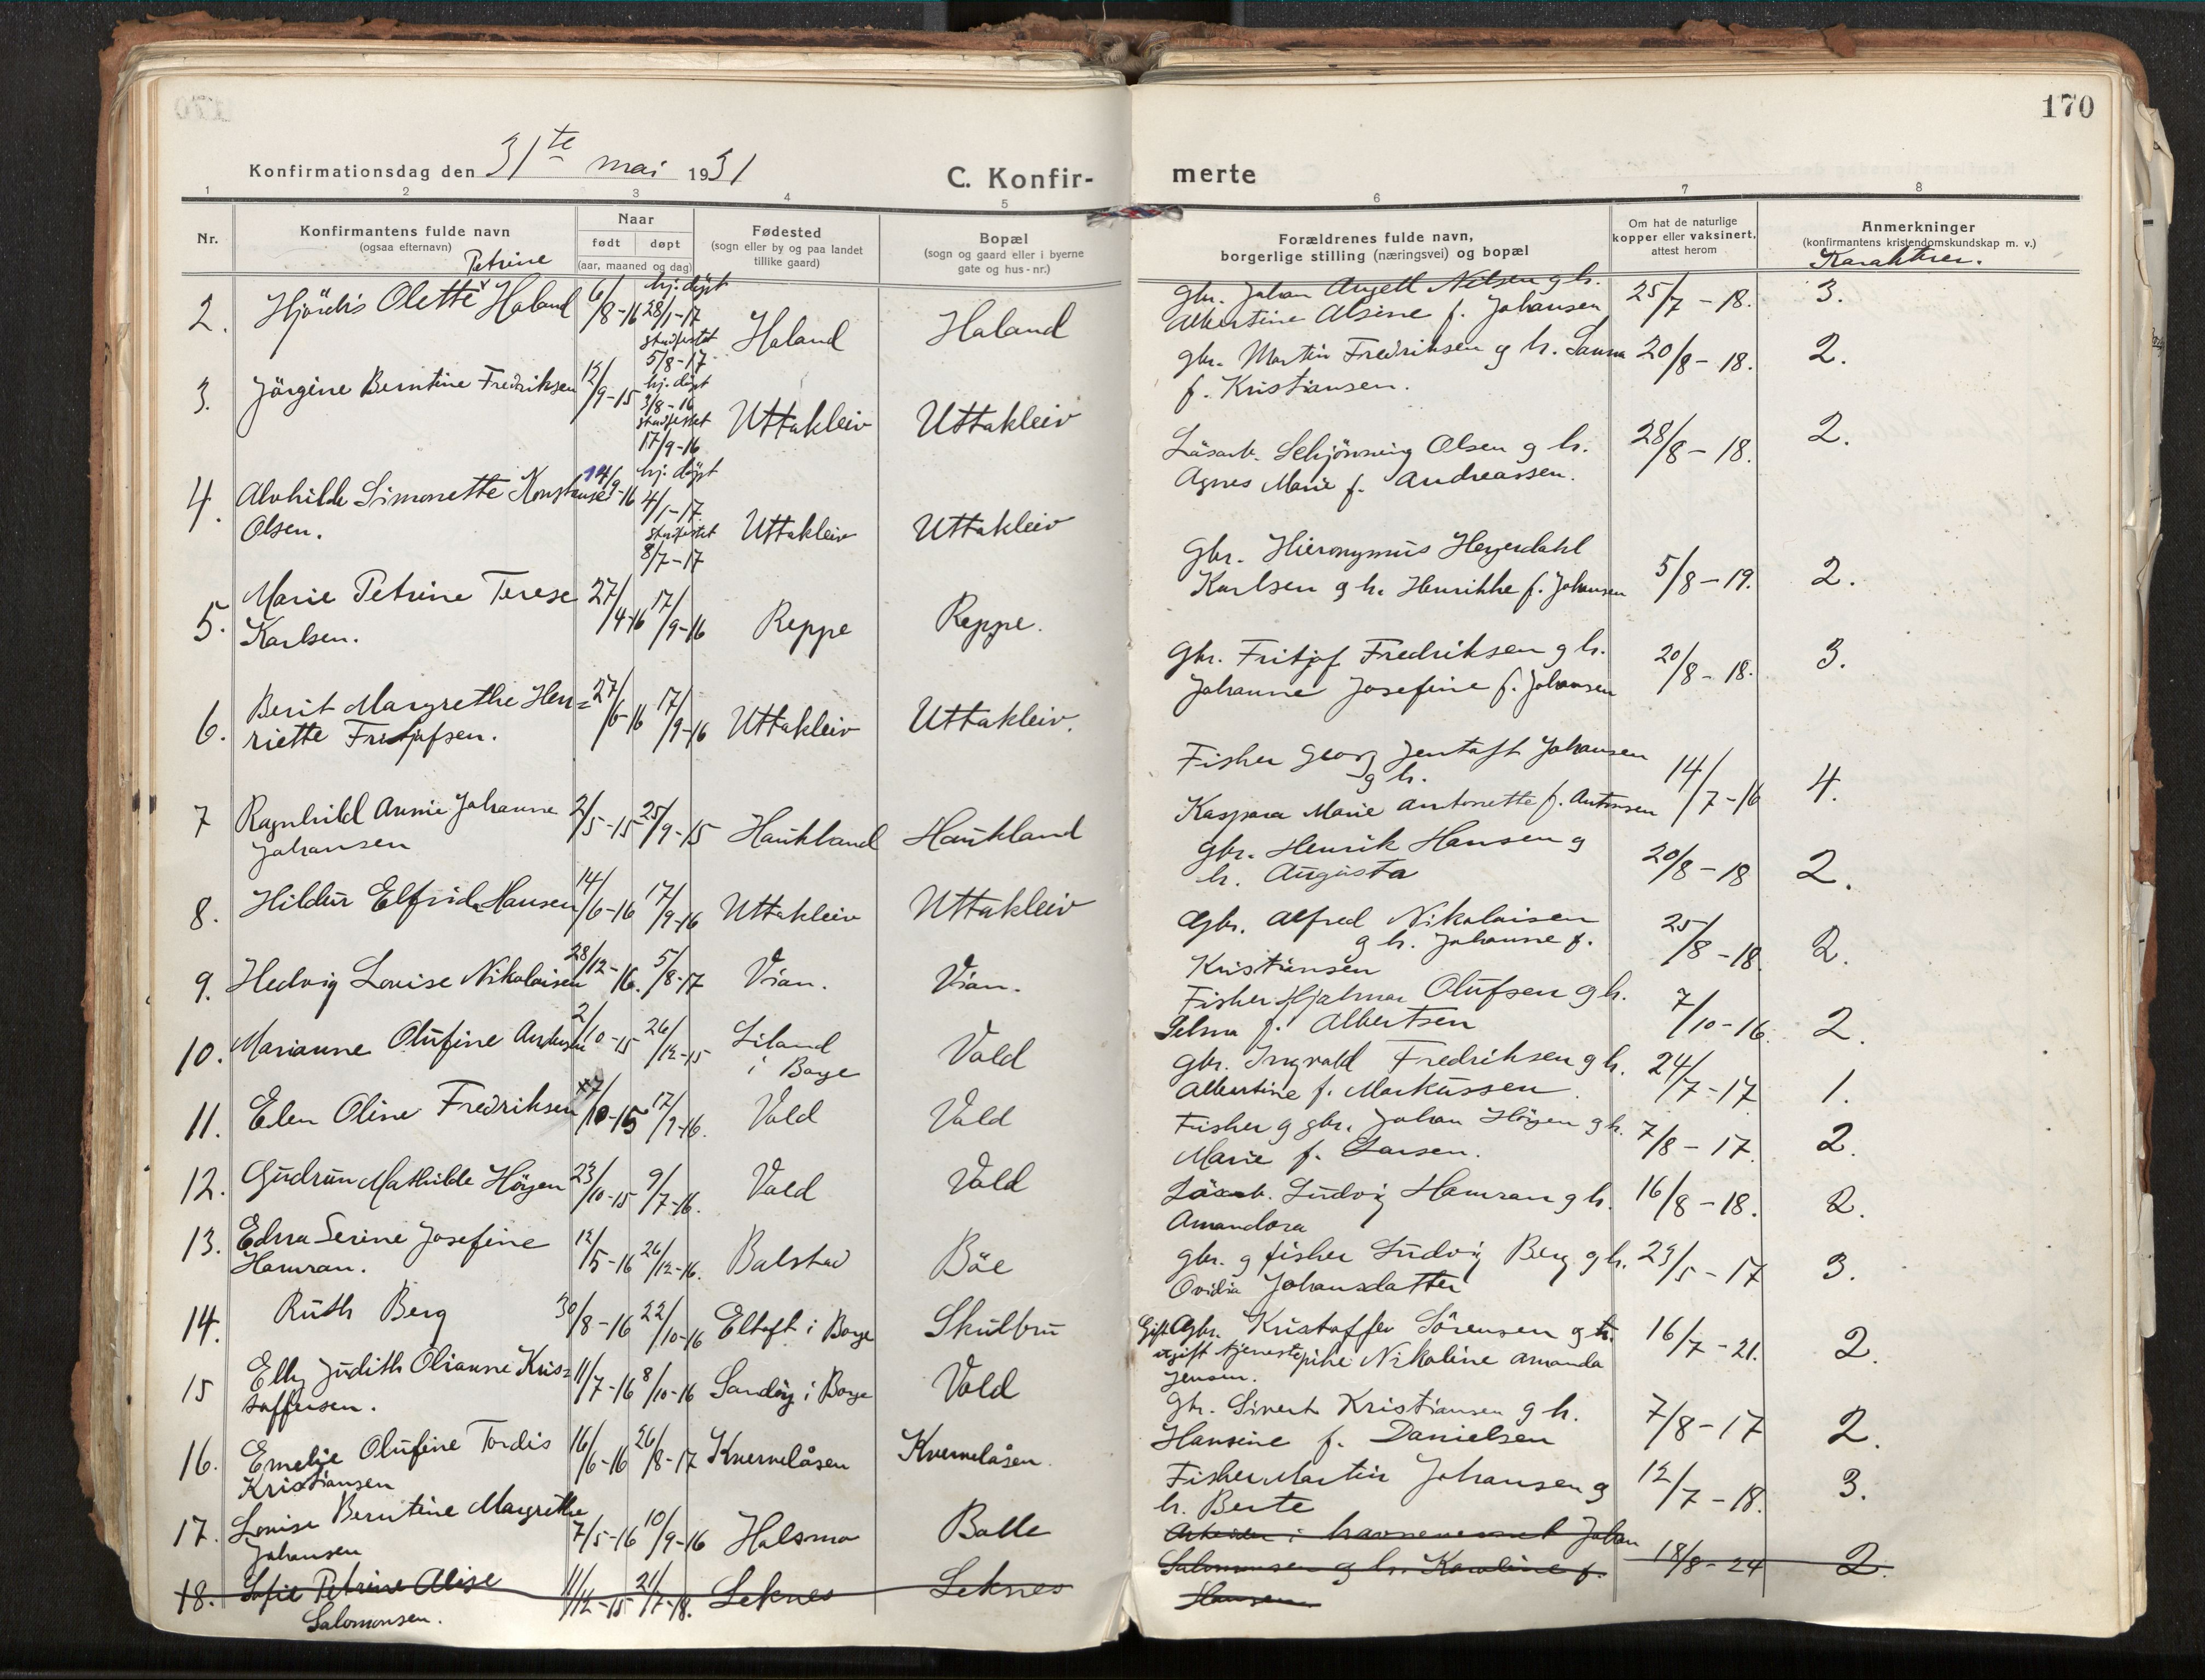 170
Konfirmationsdag den 31te mai 1931
C. Konfir-
merte
1 2 3 4 5 6 7 8
Nr.
Konfirmantens fulde navn
(ogsaa efternavn)
Naar
født døpt
(aar, maaned og dag)
Fødested
(sogn eller by og paa landet
tillike gaard)
Bopæl
(sogn og gaard eller i byerne
gate og hus-nr.)
Forældrenes fulde navn,
borgerlige stilling (næringsvei) og bopæl
Om hat de naturlige
kopper eller vaksinert,
attest herom
Anmerkninger
(konfirmantens kristendomskundskap m. v.)
Karakterer.
Petrine
2. Hjördis Olette Holand 6/8-16 hj. döpt
28/1-17
stadfestet
5/8-17
Holand Holand
Gbr. Johan Angell Nilsen g h.
Albertine Alsine f. Johansen
25/7-18. 3.
3. Jörgine Berntine Fredriksen 12/9-15 hj. döpt
3/8-16
stadfestet
17/9-16
Uttakleiv Uttakleiv
gbr. Martin Fredriksen g h. Laura
f. Kristiansen.
20/8-18. 2.
4. Alvhilde Simonette Konstanse
Olsen.
14/9-16 hj. döpt
4/1-17.
stadfestet
8/7-17
Uttakleiv Uttakleiv
Lösarb. Schjönning Olsen g h.
Agnes Marie f. Andreassen.
28/8-18. 2.
5. Marie Petrine Terese
Karlsen.
27/4-16 17/9-16 Reppe Reppe.
Gbr. Hieronymus Heyerdahl
Karlsen g h. Henrikke f. Johansen
5/8-19. 2.
6. Berit Margrethe Hen=
riette Fritjofsen.
27/6-16 17/9-16 Uttakleiv Uttakleiv.
Gbr. Fritjof Fredriksen g h.
Johanne Josefine f. Johansen
20/8-18. 3.
7 Ragnhild Annie Johanne
Johansen
2/5-15 25/9-15 Haukland Haukland
Fisker Georg Jentoft Johansen
g h.
Kaspara Marie Antonette f. Antonsen
14/7-16 4.
8. Hildur Elfrida Hansen 14/6-16 17/9-16 Uttakleiv Uttakleiv
Gbr. Henrik Hansen g
h. Augusta
20/8-18 2.
9. Hedvig Lovise Nikolaisen 28/12-16. 5/8-17 Vian. Vian.
Gbr. Alfred Nikolaisen
g h. Johanne f.
Kristiansen
25/8-18. 2.
10. Marianne Olufine 2/10-15 26/12-15 Liland
i Borge
Vold
Fisker Hjalmar Olufsen g h.
Selma f. Albertsen
7/10-16. 2.
11. Ellen Oline Fredriksen 10-15 17/9-16. Vold Vold
Gbr. Ingvald Fredriksen g h.
Albertine f. Markussen.
24/7-17 1.
12. Gudrun Mathilde Höyen 23/10-15 9/7-16. Vold Vold
Fisker g gbr. Johan Höyen g h.
Marie f. Larsen.
7/8-17. 2.
13. Edna Serine Josefine
Hamran.
12/5-16 26/12-16. Balstad Böe
Lösarb. Ludvig Hamran g h.
Amandora
16/8-18. 2.
14. Ruth Berg 30/8-16 22/10-16 Eltoft i Borge Skulbru
gbr. g fisker Ludvig Berg g h.
Ovidia Johansdatter
23/5-17 3.
15 Elly Judith Olianne Kris=
toffersen.
11/7-16 8/10-16 Sandöy i Borge Vold
Gift Gbr. Kristoffer Sörensen g
ugift tjenestepike Nikoline Amanda
Jensen.
16/7-21. 2.
16. Emelie Olufine Tordis
Kristiansen
16/6-16 26/8-17 Kvernelåsen Kvernelåsen.
Gbr. Sivert Kristiansen g h.
Hansine f. Danielsen
7/8-17 2.
17. Lovise Berntine Margrethe
Johansen
7/5-16 10/9-16 Holsmo Bolle
Fisker Martin Johansen g
h. Berte
12/7-18. 3.
18. Sofie Petrine Alise
Salomonsen.
11/12-15 21/7-18. Leknes Leknes
Arbeider i havnevesenet Johan
Salomonsen g h. Karoline f.
Hansen
18/8-24 2.